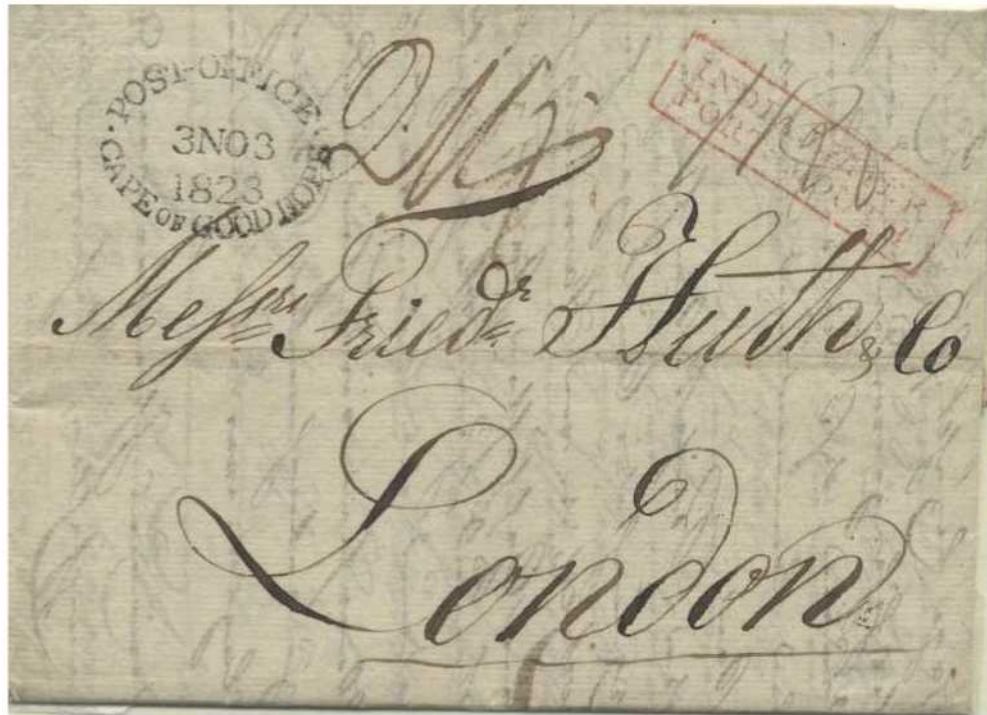 POST·OFFICE
3NO3
1823
CAPE OF GOOD HOPE
INDIA LETTER
PORTSMOUTH
Messrs Friedr. Huth & Co
London